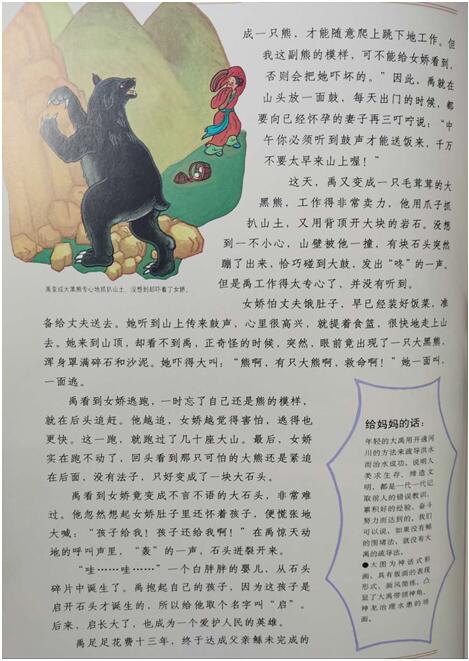 成一只熊，才能随意爬上跳下地工作。但
我这副熊的模样，可不能给女娇看到，
否则会把她吓坏的。”因此，禹就在
山头放一面鼓，每天出门的时候，都
要向已经怀孕的妻子再三叮咛说：“中
午你必须听到鼓声才能送饭来，千万
不要太早来山上喔！”
这天，禹又变成一只毛茸茸的大
黑熊，工作得非常卖力，他用爪子抓
扒山土，又用背顶开大块的岩石。没想
到一不小心，山壁被他一撞，有块石头突然
蹦了出来，恰巧碰到大鼓，发出“咚”的一声。
但是禹工作得太专心了，并没有听到。
禹变成大黑熊专心地抓扒山土，没想到却吓着了女娇。
女娇怕丈夫饿肚子，早已经装好饭菜，准
备给丈夫送去。她听到山上传来鼓声，心里很高兴，就提着食篮，很快地走上山
去。她来到山顶，却看不到禹，正奇怪的时候，突然，眼前竟出现了一只大黑熊，
浑身罩满碎石和沙泥。她吓得大叫：“熊啊，有只大熊啊，救命啊！”她一面叫，
一面逃。
禹看到女娇逃跑，一时忘了自己还是熊的模样，
就在后头追赶。他越追，女娇越觉得害怕，逃得也
更快。这一跑，就跑过了几十座大山。最后，女娇
实在跑不动了，回头看到那只可怕的大熊还是紧追
在后面，没有法子，只好变成了一块大石头。
禹看到女娇竟变成不言不语的大石头，非常难
过。他忽然想起女娇肚子里还怀着孩子，便慌张地
大喊：“孩子给我！孩子还给我啊！”在禹惊天动
地的呼喊声里，“轰”的一声，石头迸裂开来。
“哇……哇……”一个白胖胖的婴儿，从石头
碎片中诞生了。禹抱起自己的孩子，因为这孩子是
启开石头才诞生的，所以给他取个名字叫“启”。
后来，启长大了，也成为一个爱护人民的英雄。
禹足足花费十三年，终于达成父亲鲧未完成的
给妈妈的话：
年轻的大禹用开通河
川的方法来疏导洪水
而治水成功，说明人
类求生存、缔造文
明，都是一代一代记
取前人的错误教训，
累积好的经验，奋斗
努力而达到的。我们
可以说，如果没有鲧
的围堵法，就没有大
禹的疏导法。
●大图为神话式彩
画，具有版画的表现
形式，画风简练，凸
显了大禹带领神龟、
神龙治理水患的场
面。